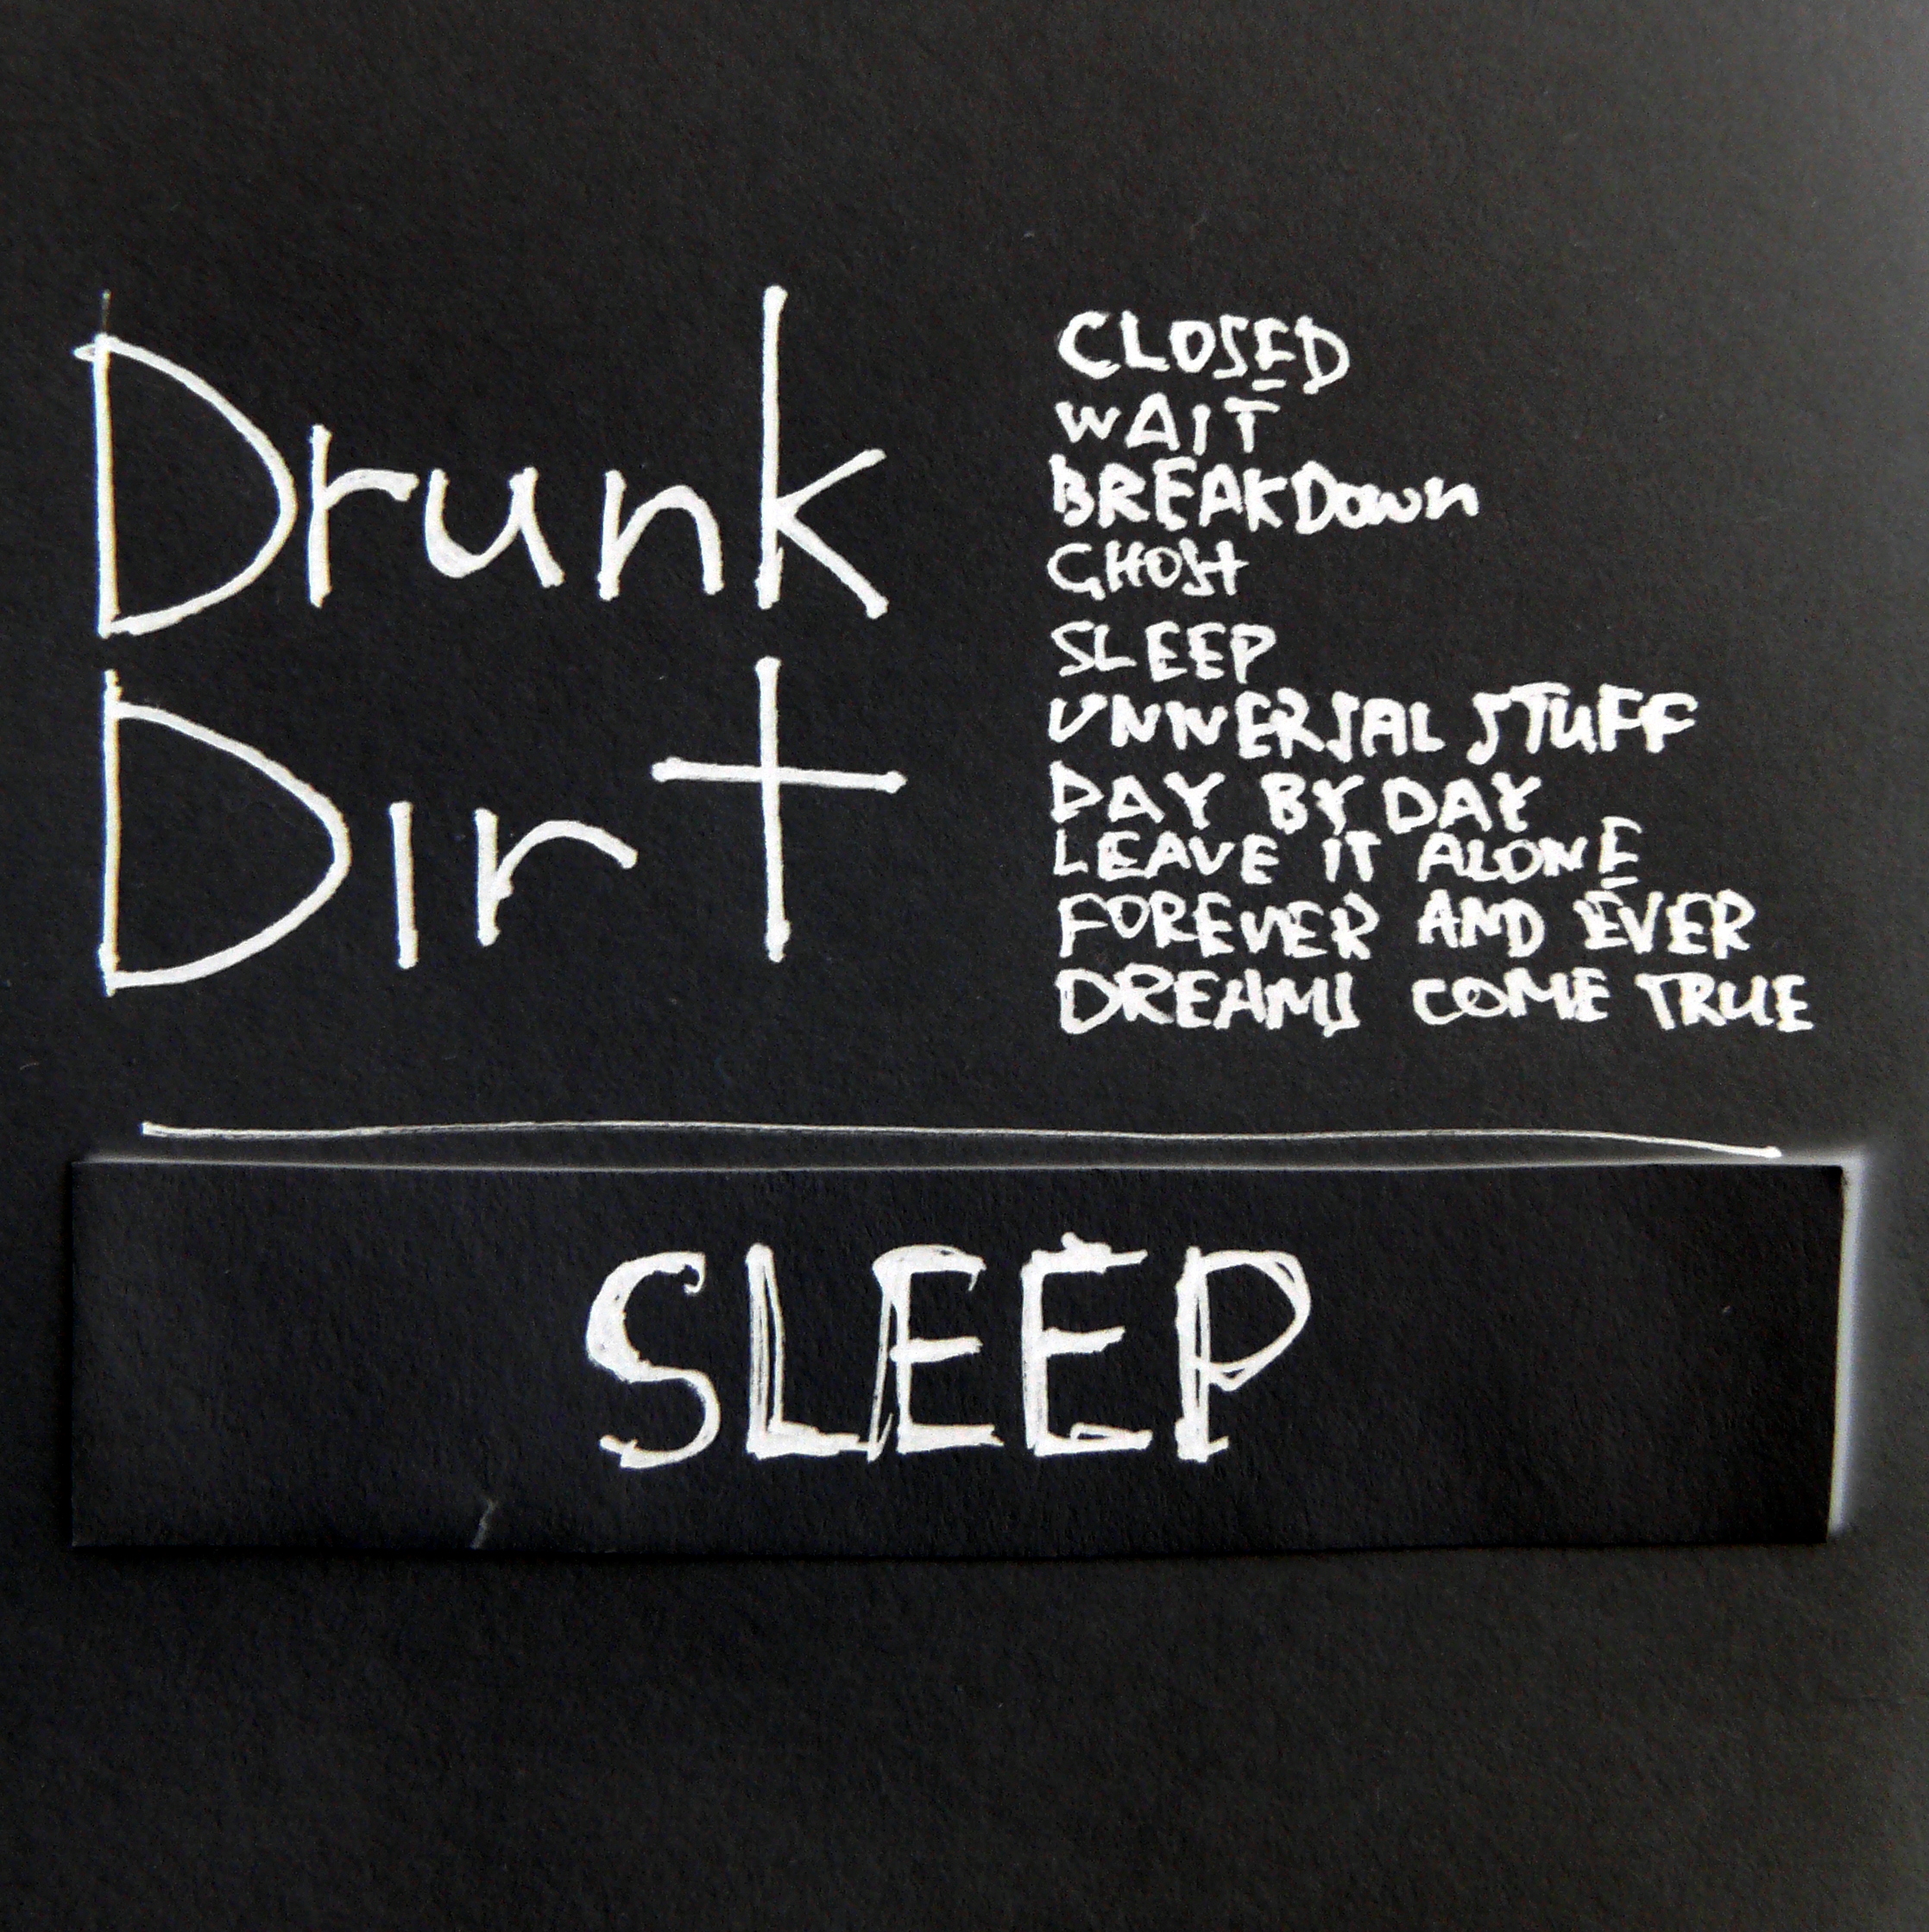 Drunk
Dirt
CLOSED
WAIT
BREAKDOWN
GHOST
SLEEP
UNIVERSAL STUFF
DAY BY DAY
LEAVE IT ALONE
FOREVER AND EVER
DREAMS COME TRUE
SLEEP